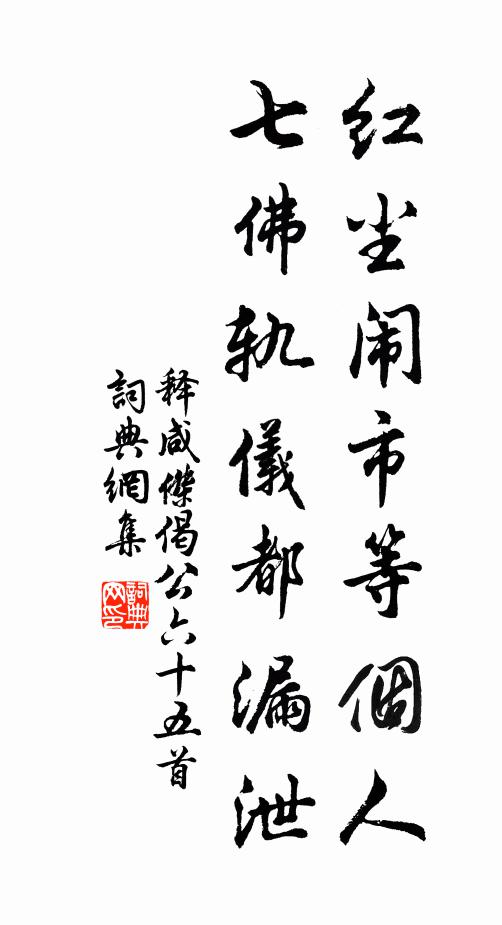 红尘闹市等個人
七佛轨儀都漏泄
释咸傑偈公六十五首
詞典網集
詞典网印